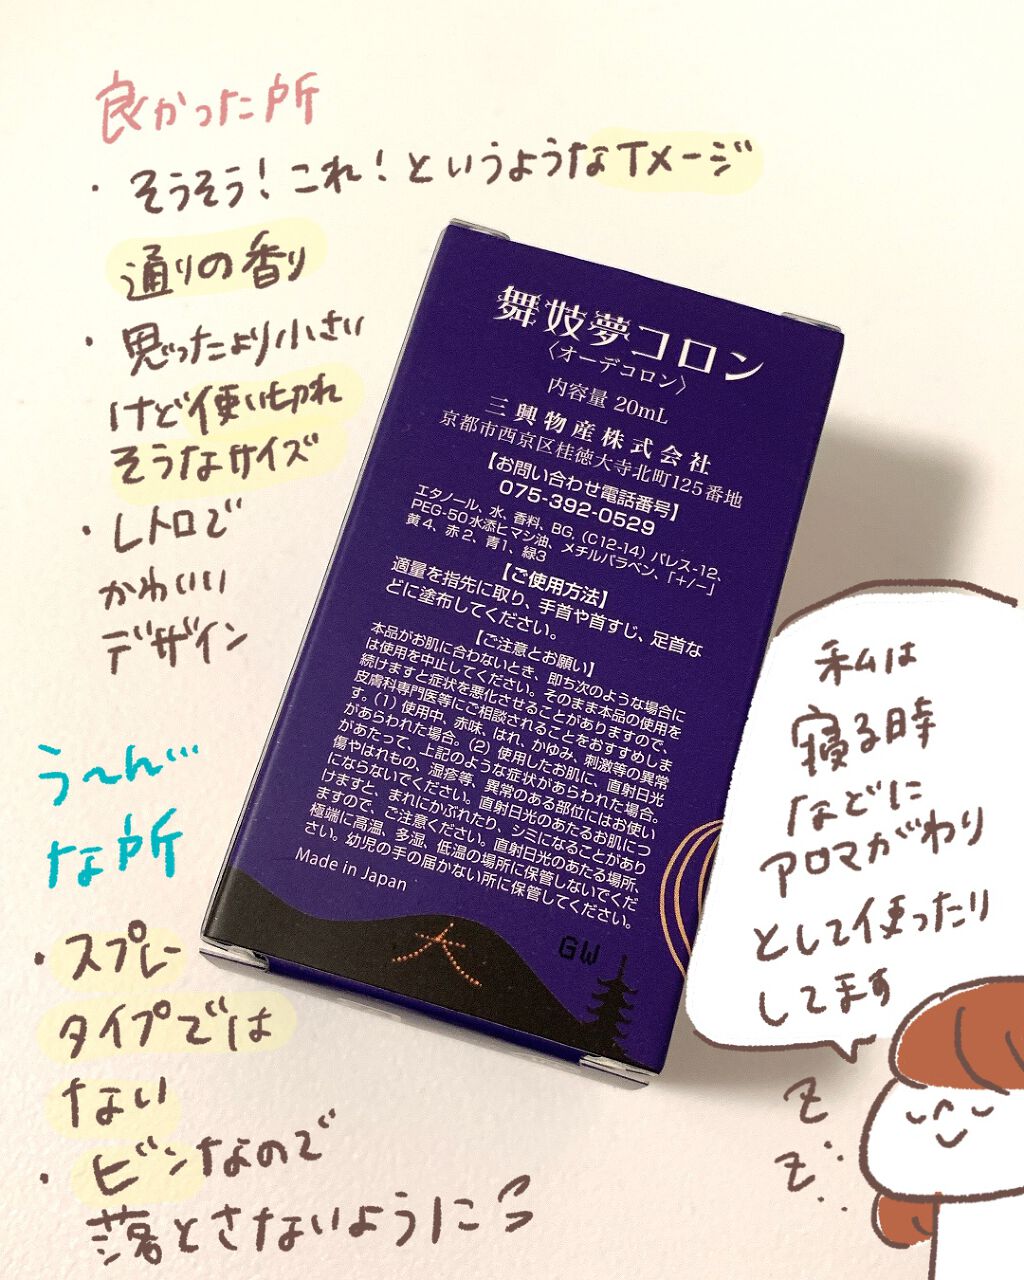 良かった所
・そうそう！これ！というようなイメージ
通りの香り
・思ったより小さい
けど使い切れ
そうなサイズ
・レトロで
かわいい
デザイン
う〜ん…
な所
・スプレー
タイプでは
ない
・ビンなので
落とさないように
舞妓夢コロン
〈オーデコロン〉
内容量 20mL
三興物産株式会社
京都市西京区桂徳大寺北町125番地
【お問い合わせ電話番号】
075-392-0529
エタノール、水、香料、BG、(C12-14) パレス-12、
PEG-50水添ヒマシ油、メチルパラベン、「+/-」
黄4、赤2、青1、緑3
【ご使用方法】
適量を指先に取り、手首や首すじ、足首な
どに塗布してください。
【ご注意とお願い】
本品がお肌に合わないとき、即ち次のような場合に
は使用を中止してください。そのまま本品の使用を
続けますと症状を悪化させることがありますので、
皮膚科専門医等にご相談されることをおすすめしま
す。(1) 使用中、赤味、はれ、かゆみ、刺激等の異常
があらわれた場合。(2) 使用したお肌に、直射日光
があたって、上記のような症状があらわれた場合。
傷やはれもの、湿疹等、異常のある部位にはお使い
にならないでください。直射日光のあたるお肌につ
けますと、まれにかぶれたり、シミになることがあり
ますので、ご注意ください。直射日光のあたる場所、
極端に高温、多湿、低温の場所に保管しないでくだ
さい。幼児の手の届かない所に保管してください。
Made in Japan
大
GW
私は
寝る時
などに
アロマがわり
として使ったり
してます
z
z